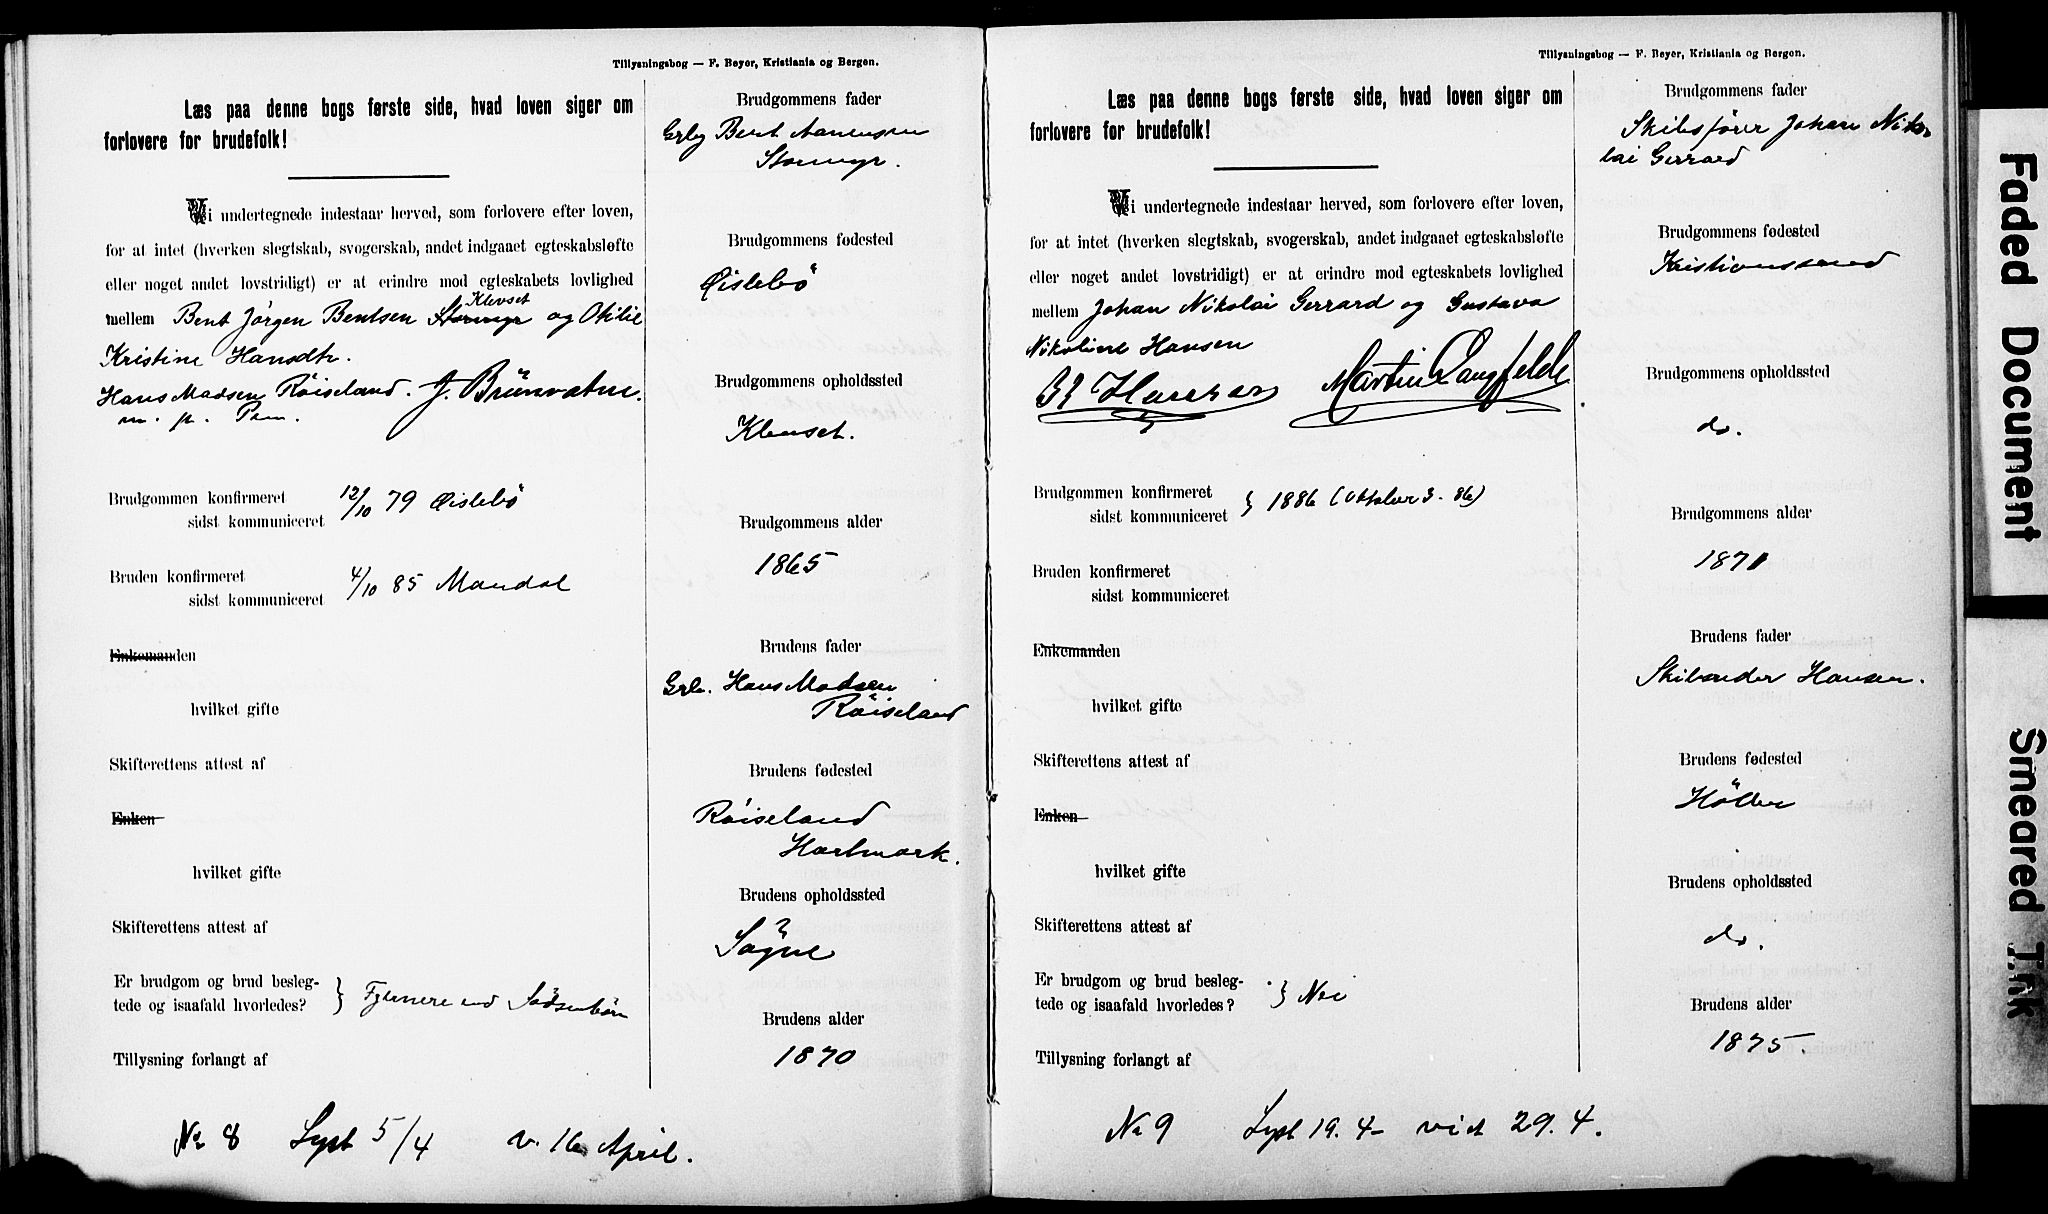 Tillysningsbog — F. Beyer, Kristiania og Bergen.
Læs paa denne bogs første side, hvad loven siger om
forlovere for brudefolk!
Vi undertegnede indestaar herved, som forlovere efter loven,
for at intet (hverken slegtskab, svogerskab, andet indgaaet egteskabsløfte
eller noget andet lovstridigt) er at erindre mod egteskabets lovlighed
Klevset
mellem Bent Jørgen Bentsen Stormyr og Otilie
Kristine Hansdtr.
Hans Madsen Røiseland. J. Brünvatne.
m. p. Pen.
Brudgommen konfirmeret
sidst kommuniceret
12/10 79 Øislebø
Bruden konfirmeret
sidst kommuniceret
4/10 85 Mandal
Enkemanden
hvilket gifte
Skifterettens attest af
Enken
hvilket gifte
Skifterettens attest af
Er brudgom og brud besleg-
tede og isaafald hvorledes? } Fjernere end Sødskenbørn
Tillysning forlangt af
No 8 Lyst 5/4 v. 16 April.
Brudgommens fader
Grbg Bent Aanensen
Stormyr.
Brudgommens fødested
Øislebø
Brudgommens opholdssted
Klevset.
Brudgommens alder
1865
Brudens fader
Grb. Hans Madsen
Røiseland
Brudens fødested
Røiseland
Hartmark.
Brudens opholdssted
Søgne
Brudens alder
1870
Tillysningsbog — F. Beyer, Kristiania og Bergen.
Læs paa denne bogs første side, hvad loven siger om
forlovere for brudefolk!
Vi undertegnede indestaar herved, som forlovere efter loven,
for at intet (hverken slegtskab, svogerskab, andet indgaaet egteskabsløfte
eller noget andet lovstridigt) er at erindre mod egteskabets lovlighed
mellem Johan Nikolai Gerrard og Gustava
Nikoline Hansen
Hansen Martin Langfeldt
Brudgommen konfirmeret
sidst kommuniceret
} 1886 (Oktober 3. 86)
Bruden konfirmeret
sidst kommuniceret
Enkemanden
hvilket gifte
Skifterettens attest af
Enken
hvilket gifte
Skifterettens attest af
Er brudgom og brud besleg-
tede og isaafald hvorledes? } Nei
Tillysning forlangt af
No 9 Lyst 19. 4 - viet 29. 4.
Brudgommens fader
Skibsfører Johan Niko-
lai Gerrard
Brudgommens fødested
Kristianssand
Brudgommens opholdssted
do.
Brudgommens alder
1871
Brudens fader
Skibsreder Hansen.
Brudens fødested
Høllen
Brudens opholdssted
do.
Brudens alder
1875.
Faded Document
Smeared Ink